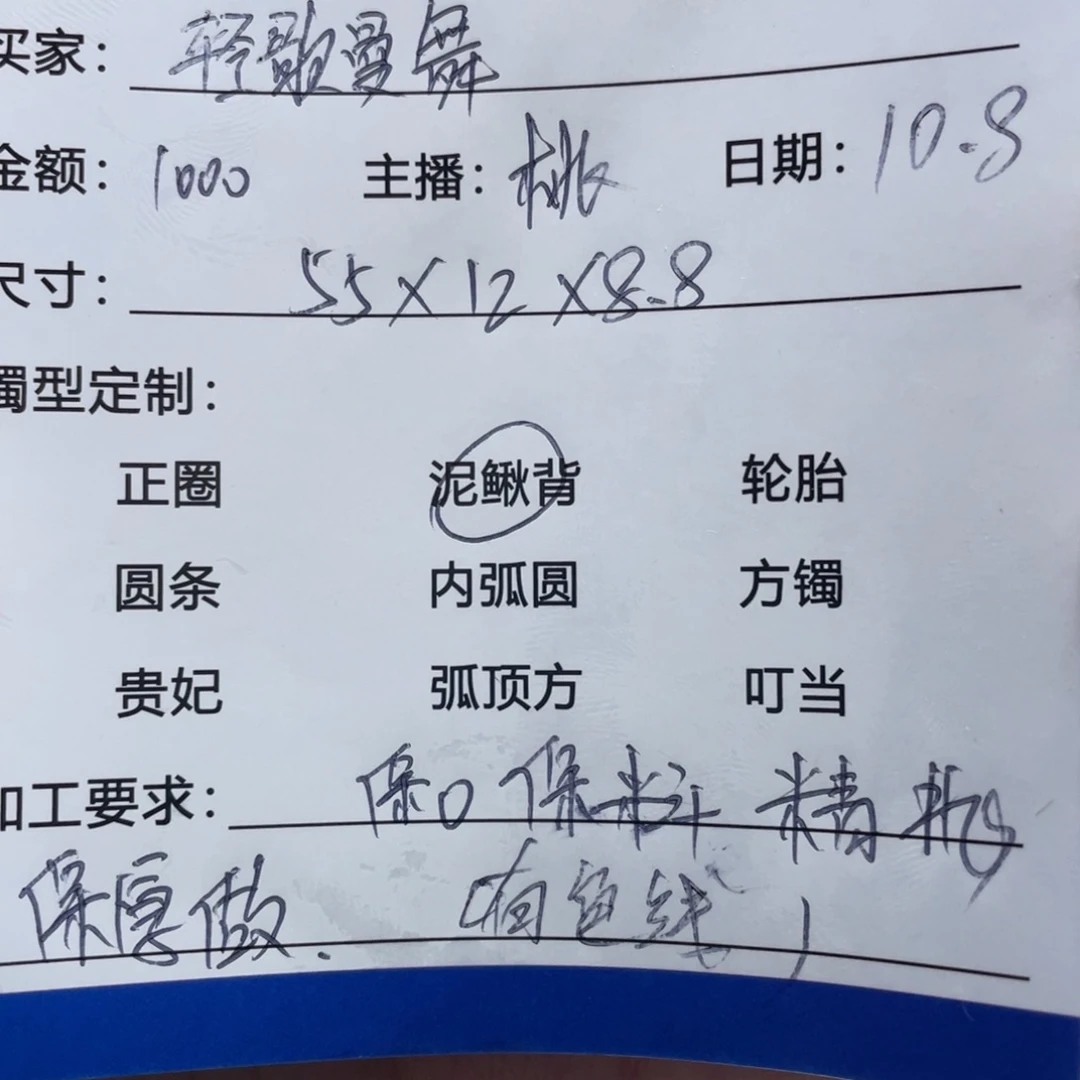 买家：轻歌曼舞
金额：1000 主播：桃 日期：10.8
尺寸：55×12×8.8
镯型定制：
正圈 泥鳅背 轮胎
圆条 内弧圆 方镯
贵妃 弧顶方 叮当
加工要求：保口保料 精抛
保厚做. （有色线）